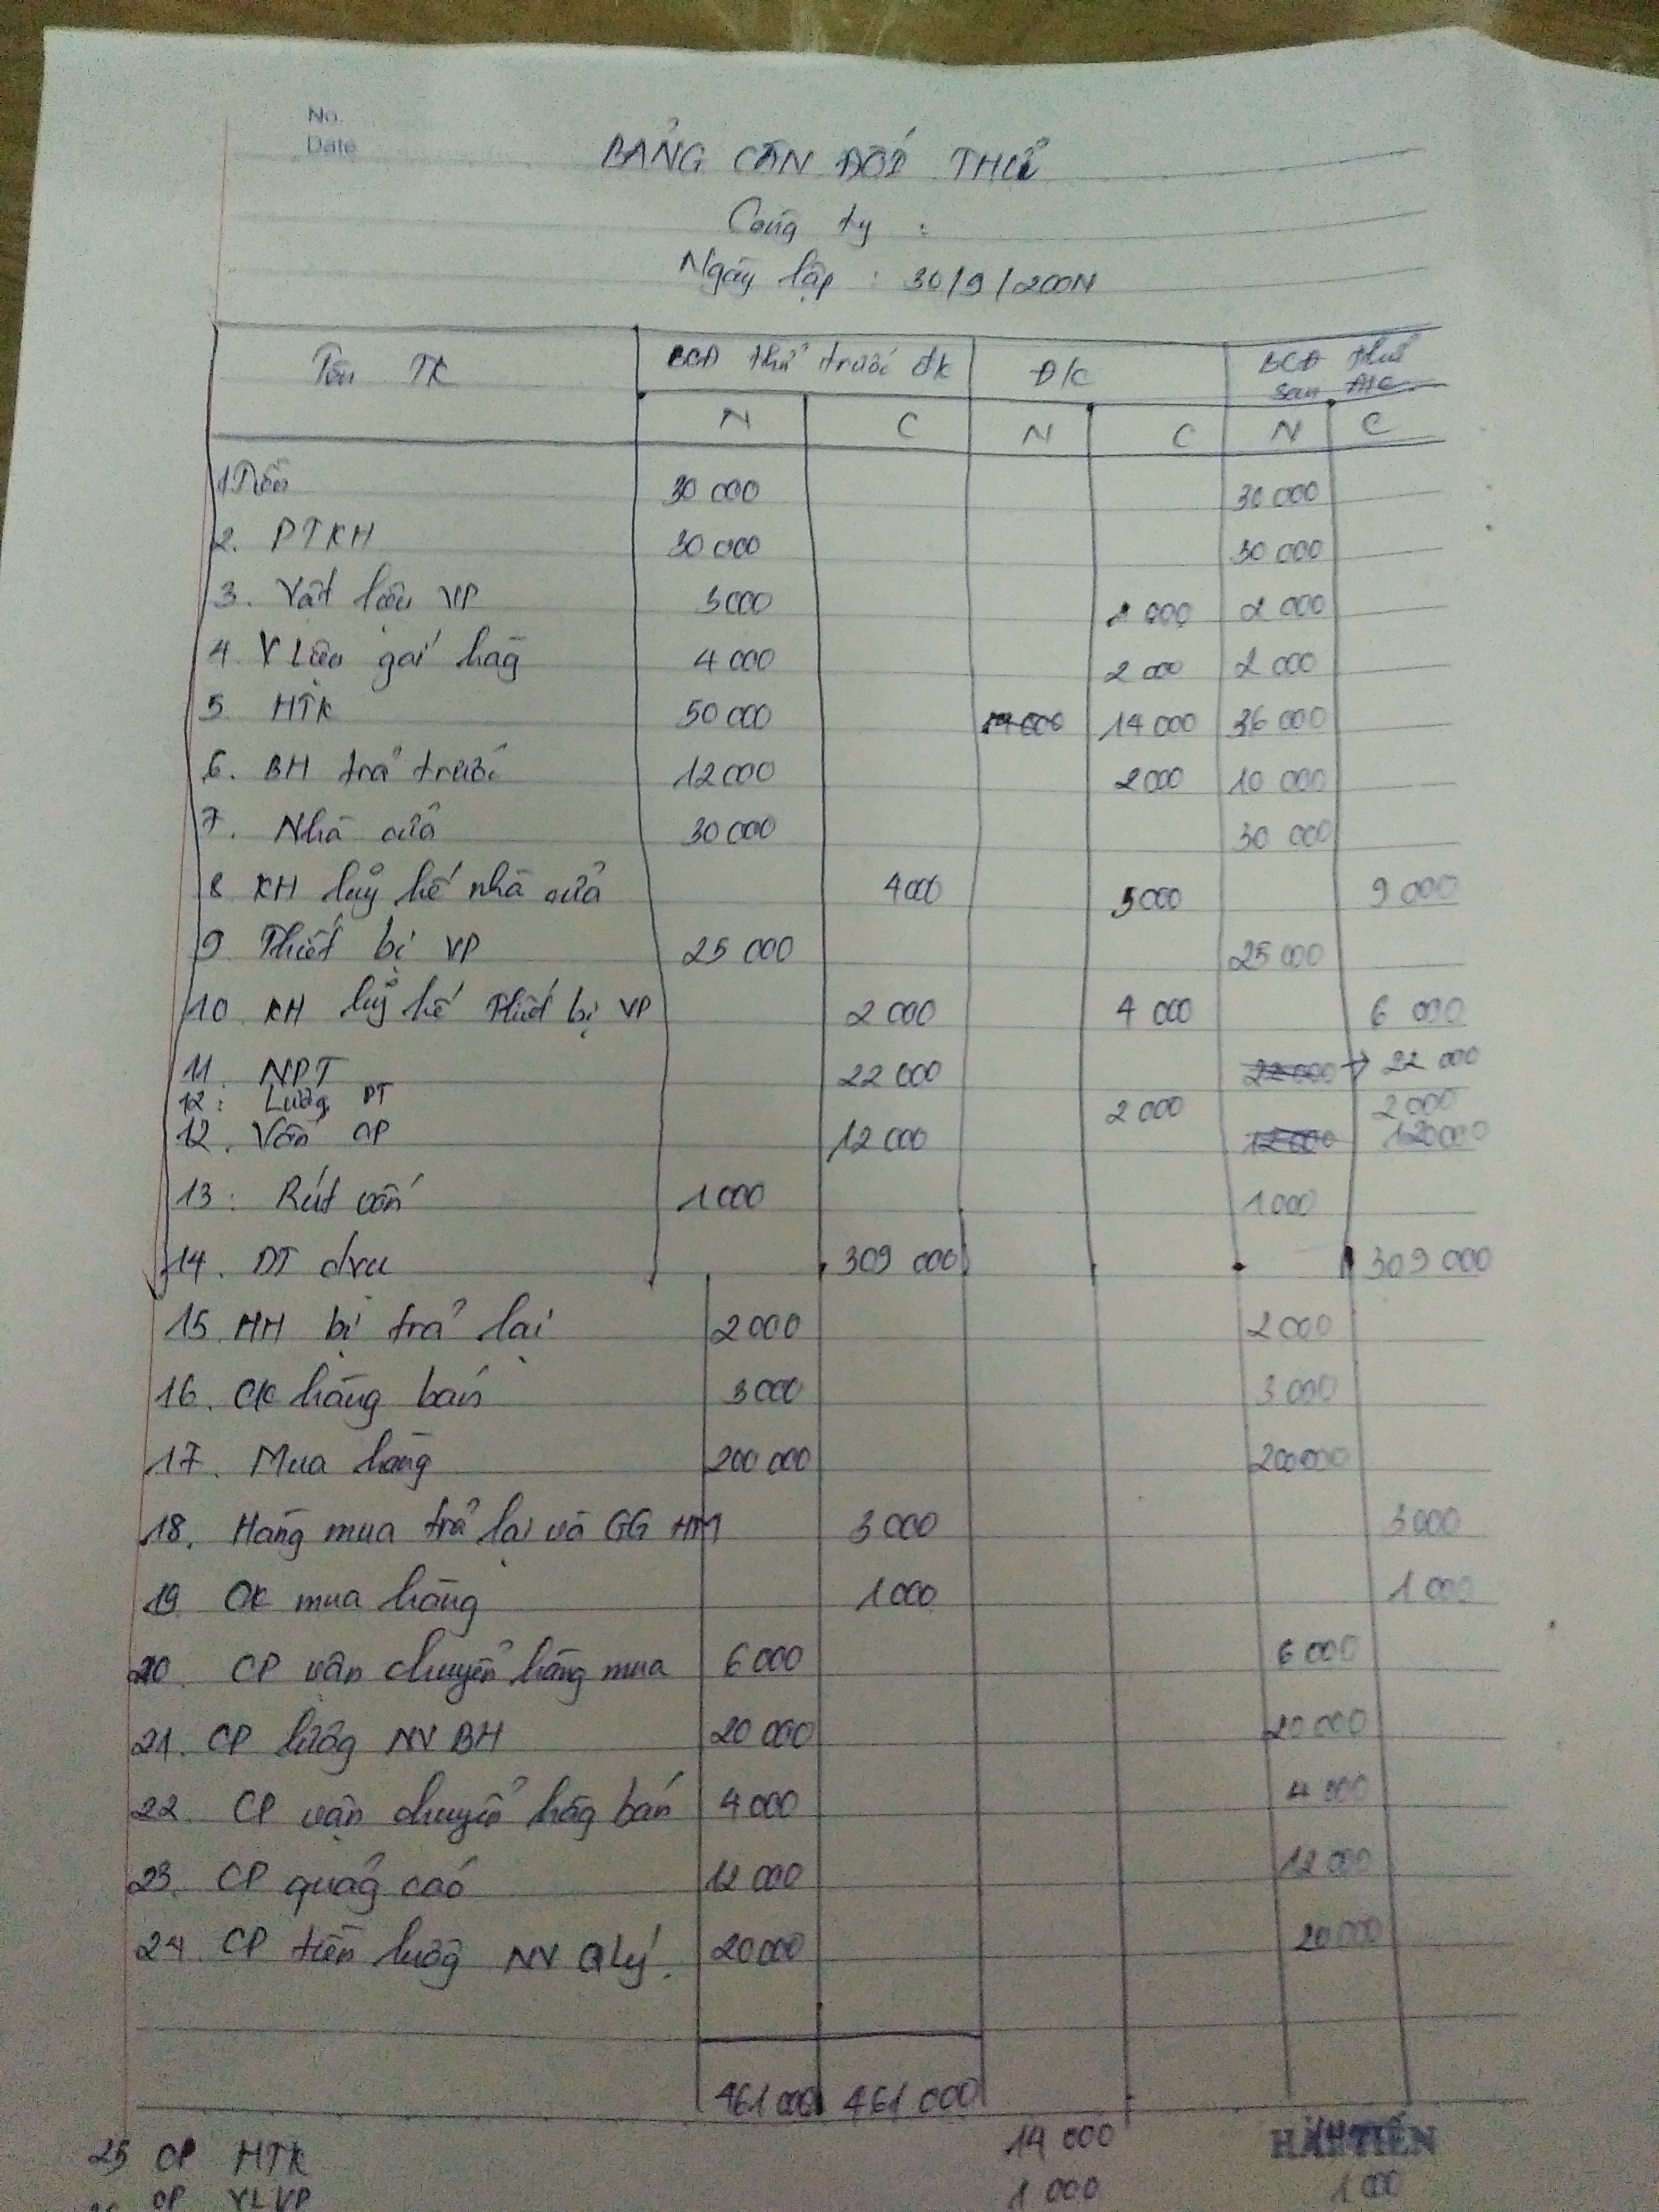 No.
Date
BẢNG CÂN ĐỐI THỬ
Công ty :
Ngày lập : 30/9/200N
Tên TK BCĐ thử trước đk Đ/C BCĐ thử sau Đ/C
N C N C N C
1 Tiền 30 000 30 000
2. PTKH 30 000 30 000
3. Vật liệu VP 3000 1 000 2 000
4 V Liệu gói hàg 4 000 2 000 2 000
5 HTK 50 000 14 000 14 000 36 000
6. BH trả trước 12 000 2 000 10 000
7. Nhà cửa 30 000 30 000
8 KH luỹ kế nhà cửa 4 000 5 000 9 000
9 Thiết bị VP 25 000 25 000
10 KH luỹ kế thiết bị VP 2 000 4 000 6 000
11. NPT 22 000 22 000 → 22 000
12: Lương PT 2 000 2 000
12. Vốn CP 12 000 12 000 120000
13: Rút vốn 1 000 1 000
14. DT dvu 309 000 309 000
15. HH bị trả lại 2 000 2 000
16. CK hàng bán 3 000 3 000
17. Mua hàng 200 000 200 000
18. Hàng mua trả lại và GG HM 3 000 3 000
19 CK mua hàng 1 000 1 000
20. CP vận chuyển hàng mua 6 000 6 000
21. CP lương NV BH 20 000 20 000
22. CP vận chuyển hàg bán 4 000 4 000
23. CP quảng cáo 12 000 12 000
24. CP tiền lương NV QLý. 20 000 20 000
461 000 461 000
25 CP HTK 14 000
HẢI TIẾN
CP VLVP 1 000 1 000